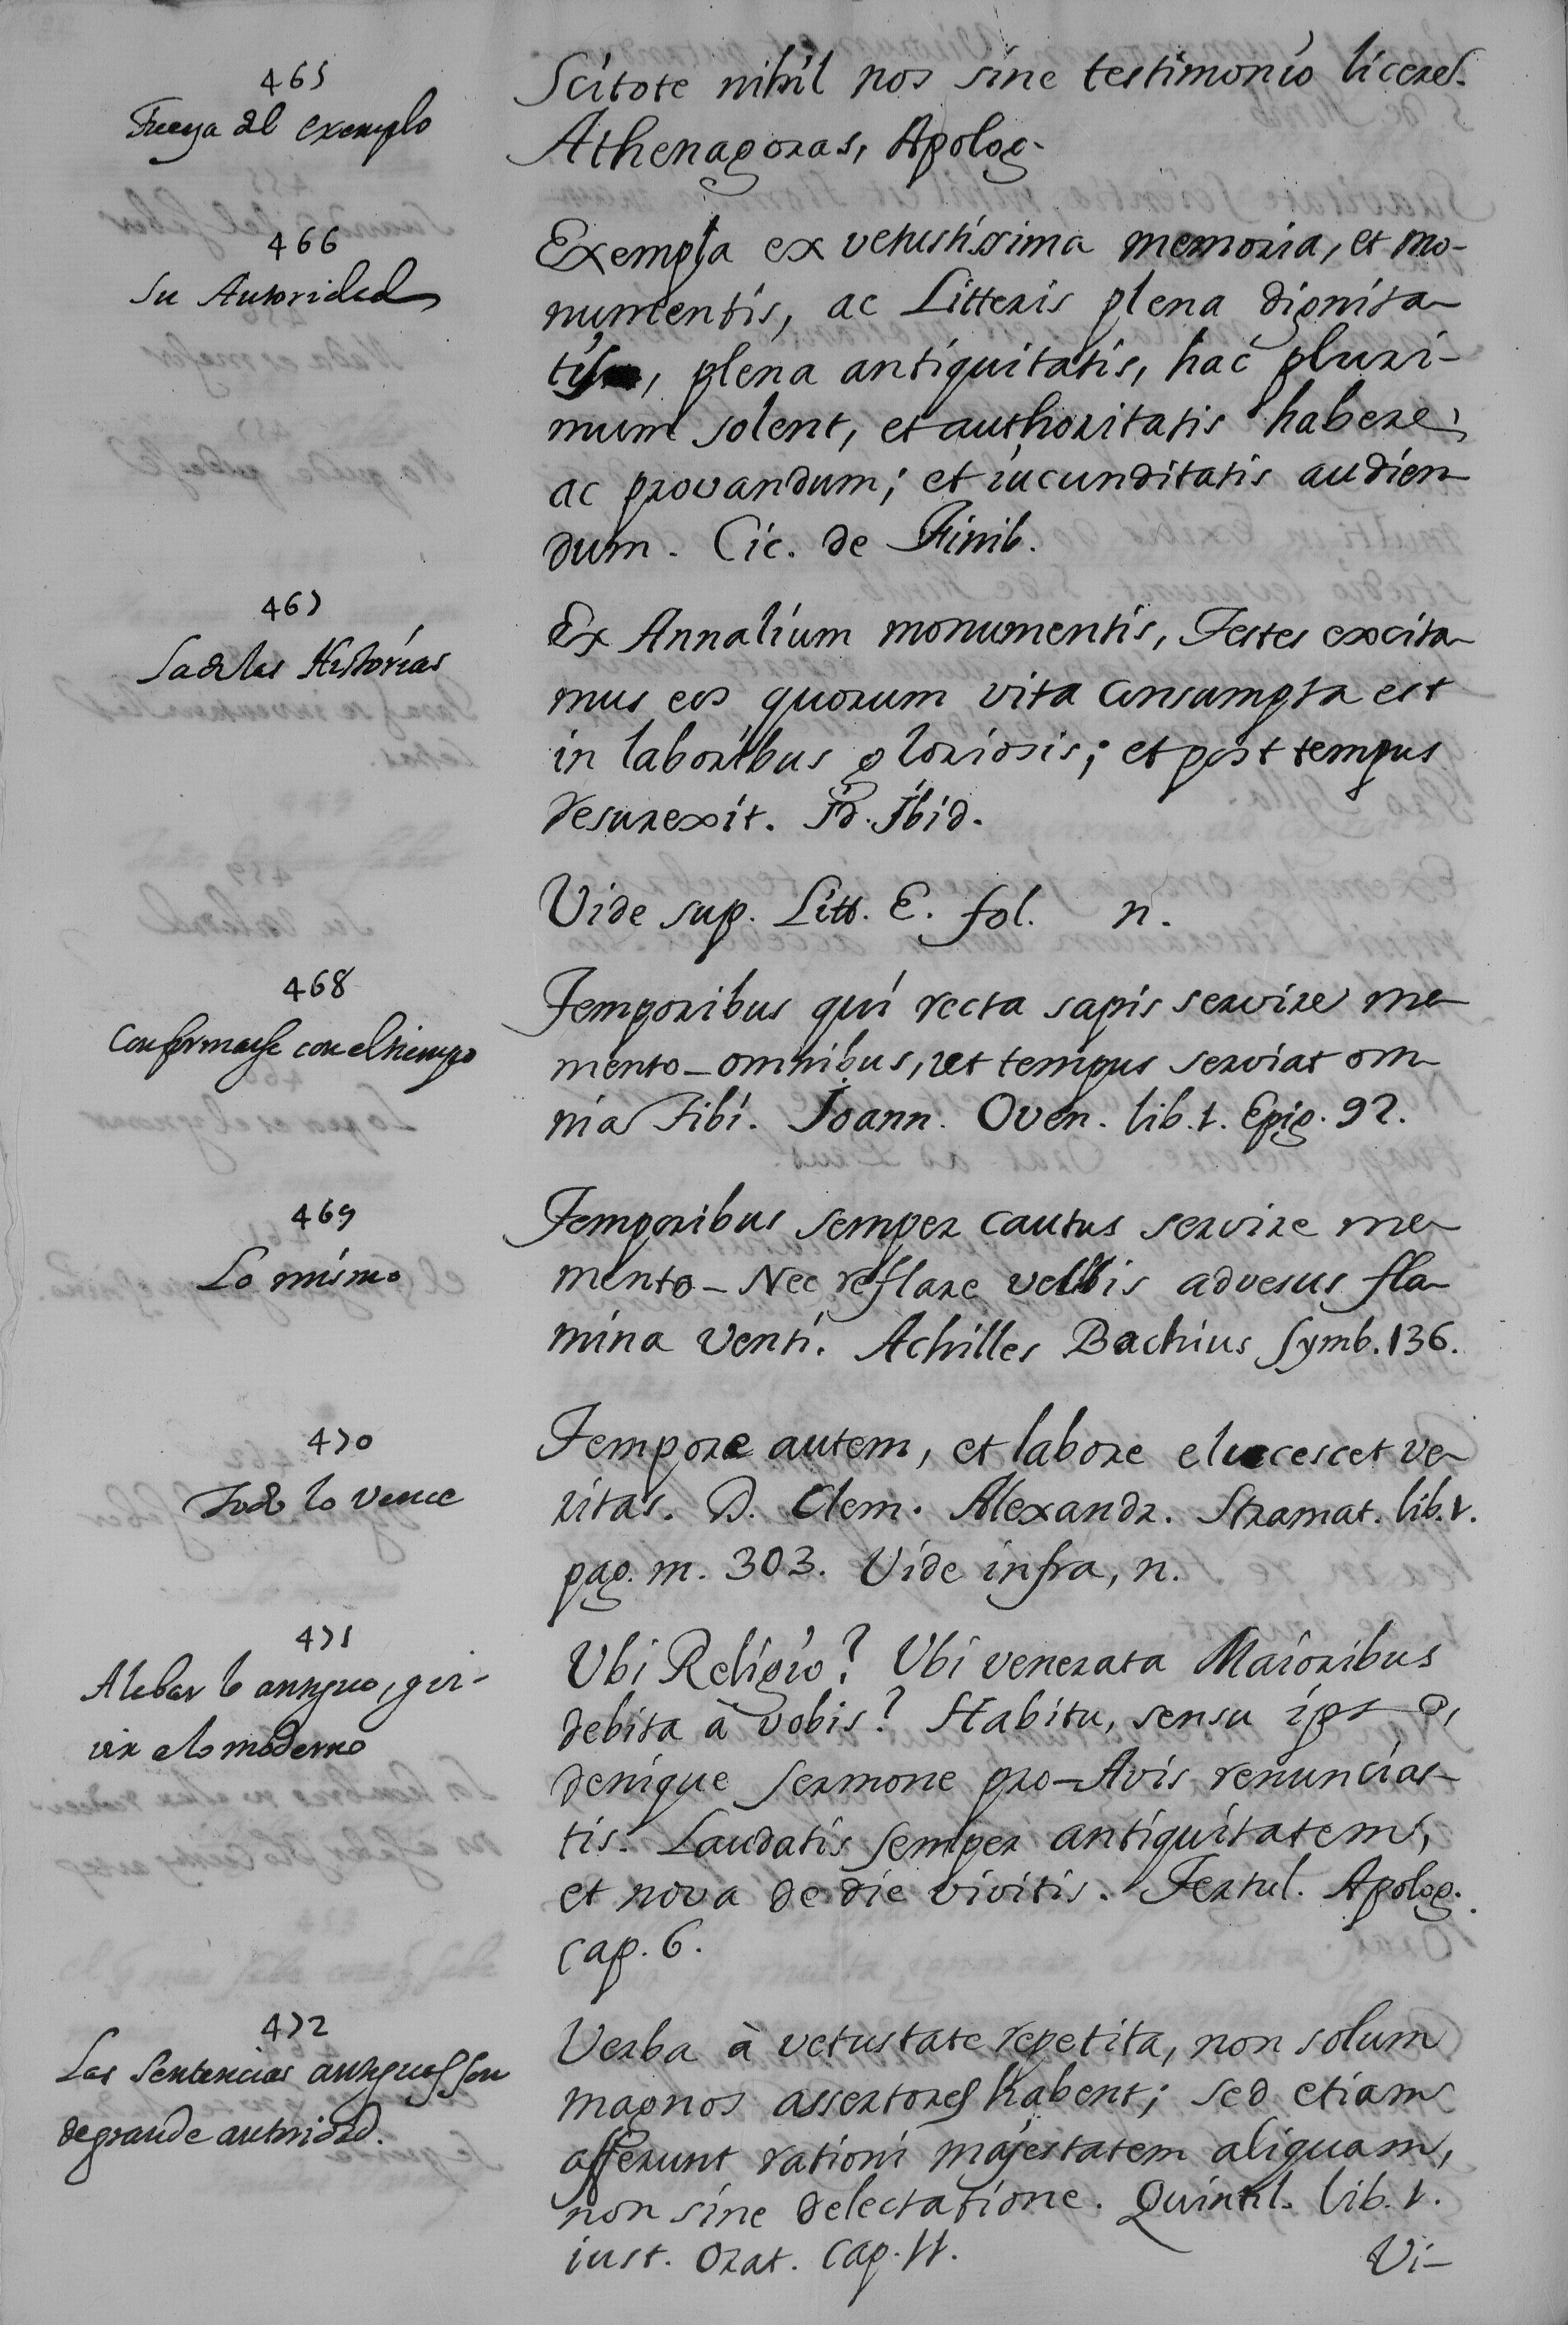 465
Fuerza del exemplo
Scitote nihil nos sine testimonio licere.
Athenagoras, Apolog.
466
Su Autoridad
Exempla ex vetustissima memoria, et mo-
numentis, ac Litteris plena dignita-
tis, plena antiquitatis, hac pluri-
mum solent, et authoritatis habere,
ac provandum; et iucunditatis audien-
dum. Cic. de Finib.
467
La de las Historias
Ex Annalium monumentis, Testes excita-
mus eos quorum vita consumpta est
in laboribus gloriosis; et post tempus
resurexit. Id. Ibid.
Vide sup. Litt. E. fol. n.
468
Conformarse con el tiempo
Temporibus qui recta sapis servire me-
mento-omnibus, ut tempus serviat om-
nia Tibi. Joann. Oven. lib. 1. Epig. 92.
469
Lo mismo
Temporibus semper cautus servire me-
mento - Nec reflare vellis advesus fla-
mina venti. Achilles Bachius Symb. 136.
470
Todo lo vence
Tempore autem, et labore elucescet ve-
ritas. D. Clem. Alexandr. Stramat. lib. 1.
pag. m. 303. Vide infra, n.
471
Alabar lo antiguo, y vi-
vir a lo moderno
Ubi Religio? Ubi venerata Maioribus
debita à vobis? Habitu, sensu ipso,
denique sermone pro-Avis renuncias-
tis. Laudatis semper antiquitatem,
et nova de die vivitis. Tertul. Apolog.
cap. 6.
472
Las Sentencias antiguas son
de grande autoridad.
Verba à vetustate repetita, non solum
magnos assertores habent; sed etiam
afferunt rationi majestatem aliquam,
non sine delectatione. Quintil. lib. 1.
iust. Orat. cap. 11.
Vi-